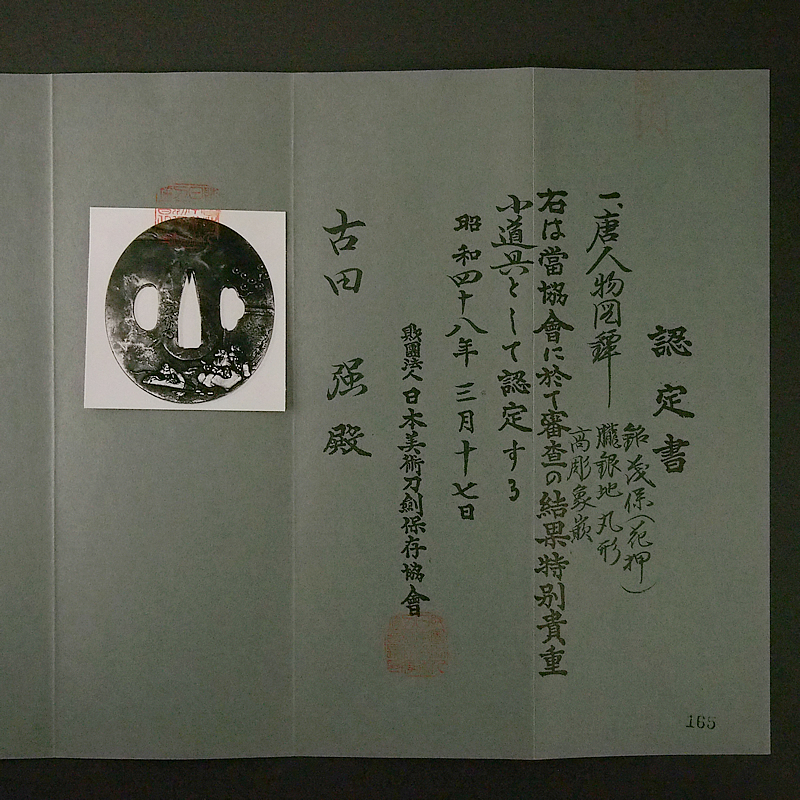 認定書
一、唐人物図鐔
銘 茂保(花押)
朧銀地 丸形
高彫象嵌
右は當協會に於て審査の結果特別貴重
小道具として認定する
昭和四十八年三月十七日
財團法人日本美術刀劍保存協會
古田 强殿
165